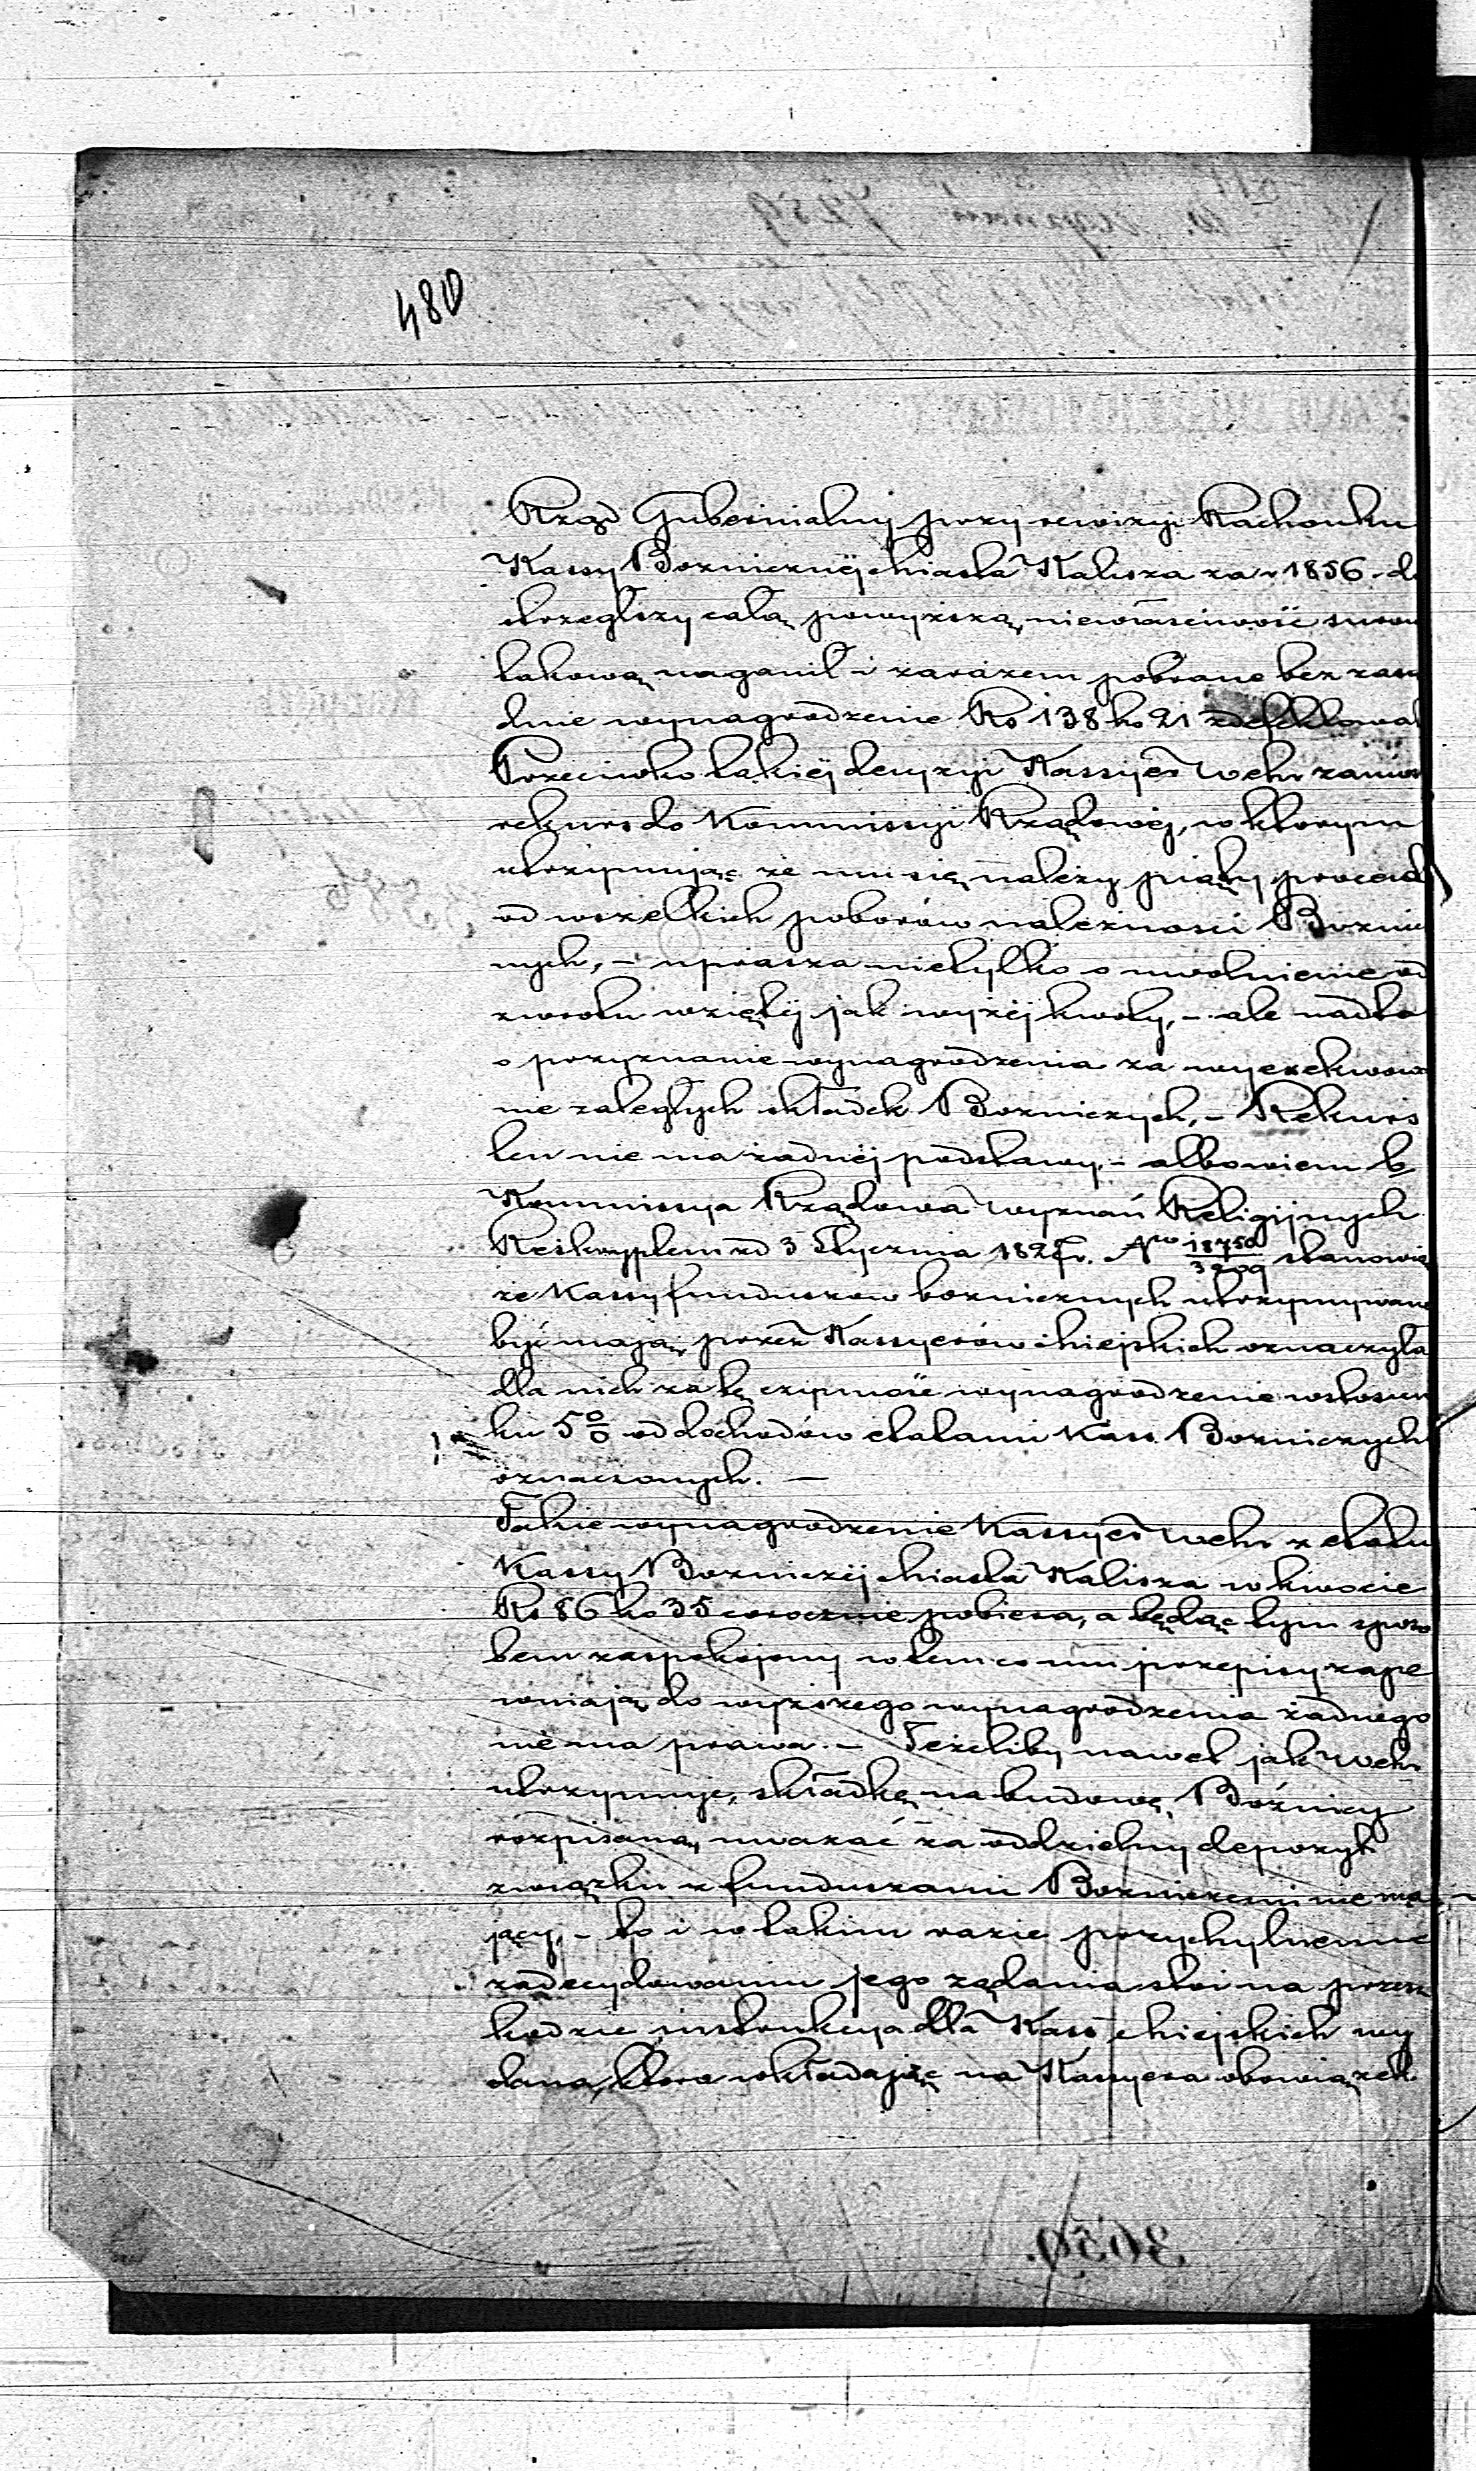 480
Rząd Gubernialny przy rewizyi Rachonku
Kassy Bożnicznéj Miasta Kalisza za r. 1856. do
strzegłszy całą powyższą niewłaściwość surow
takową naganił i zarazem pobrane bez zasa
dnie wynagrodzenie Rs 138 k. 21 zdefektował
Przeciwko takiéj decyzyi Kassyer Wehr zaniosł
rekurs do Kommissyi Rządowéj, w którym
utrzymując że mu się należy piąty procent
od wszelkich poborów należności Bożnic
nych, – uprasza nietylko o uwolnienie od
zwrotu wziętéj jak wyżéj kwoty, – ale nadto
o przyznanie wynagrodzenia za wyexekwowa
nie zaległych składek Bożniczych, – Rekurs
ten nie ma żadnéj podstawy, – albowiem b.
Kommissya Rządowa Wyznań Religijnych
Reskryptem od 3 Stycznia 182 r. Nro 18750 stanowiąc
że Kassy funduszow bożnicznych utrzymywane
być mają przez Kassyerów Miejskich oznaczyła
dla nich za tę czynność wynagrodzenie w stosun
ku 5% od dochodów etatami Kass Bożniczych
oznaczonych. –
Takie wynagrodzenie Kassyer Wehr z etatu
Kassy Bożniczéj Miasta Kalisza w kwocie
Rs 86 k. 35 corocznie pobiera, a będąc tym sposo
bem zaspokojony w tem co mu przepisy zape
wniają do wyższego wynagrodzenia żadnego
niema prawa. – Jeżeliby nawet jak Wehr
utrzymuje, składkę na budowę Bóżnicy
rozpisaną, uważać za oddzielny depozyt
związku z funduszami Bożniczemi nie ma
jący, – to i w takim razie przychylnemu
zadecydowaniu jego żądania stoi na przesz
kodzie instrukcya dla Kass Miejskich wy
dana, która wkładając na Kassyera obowiązek